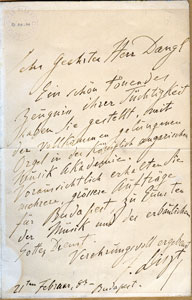 Sehr Geehrter Herr Dangl
Ein schön tönendes
Zeugniss ihrer Tüchtigkeit
haben Sie gestellt, mit
der Vollkommen gelungenen
Orgel in der königlich ungarischen
Musik Akademie.
erhalten Sie
mehrere, grössere Aufträge
für Budapest zu Gunsten
der Musik und des erbaulichen
Gottes Dienst.
Verehrungsvoll ergeben
F. Liszt
21ten Februar, 83. Budapest.